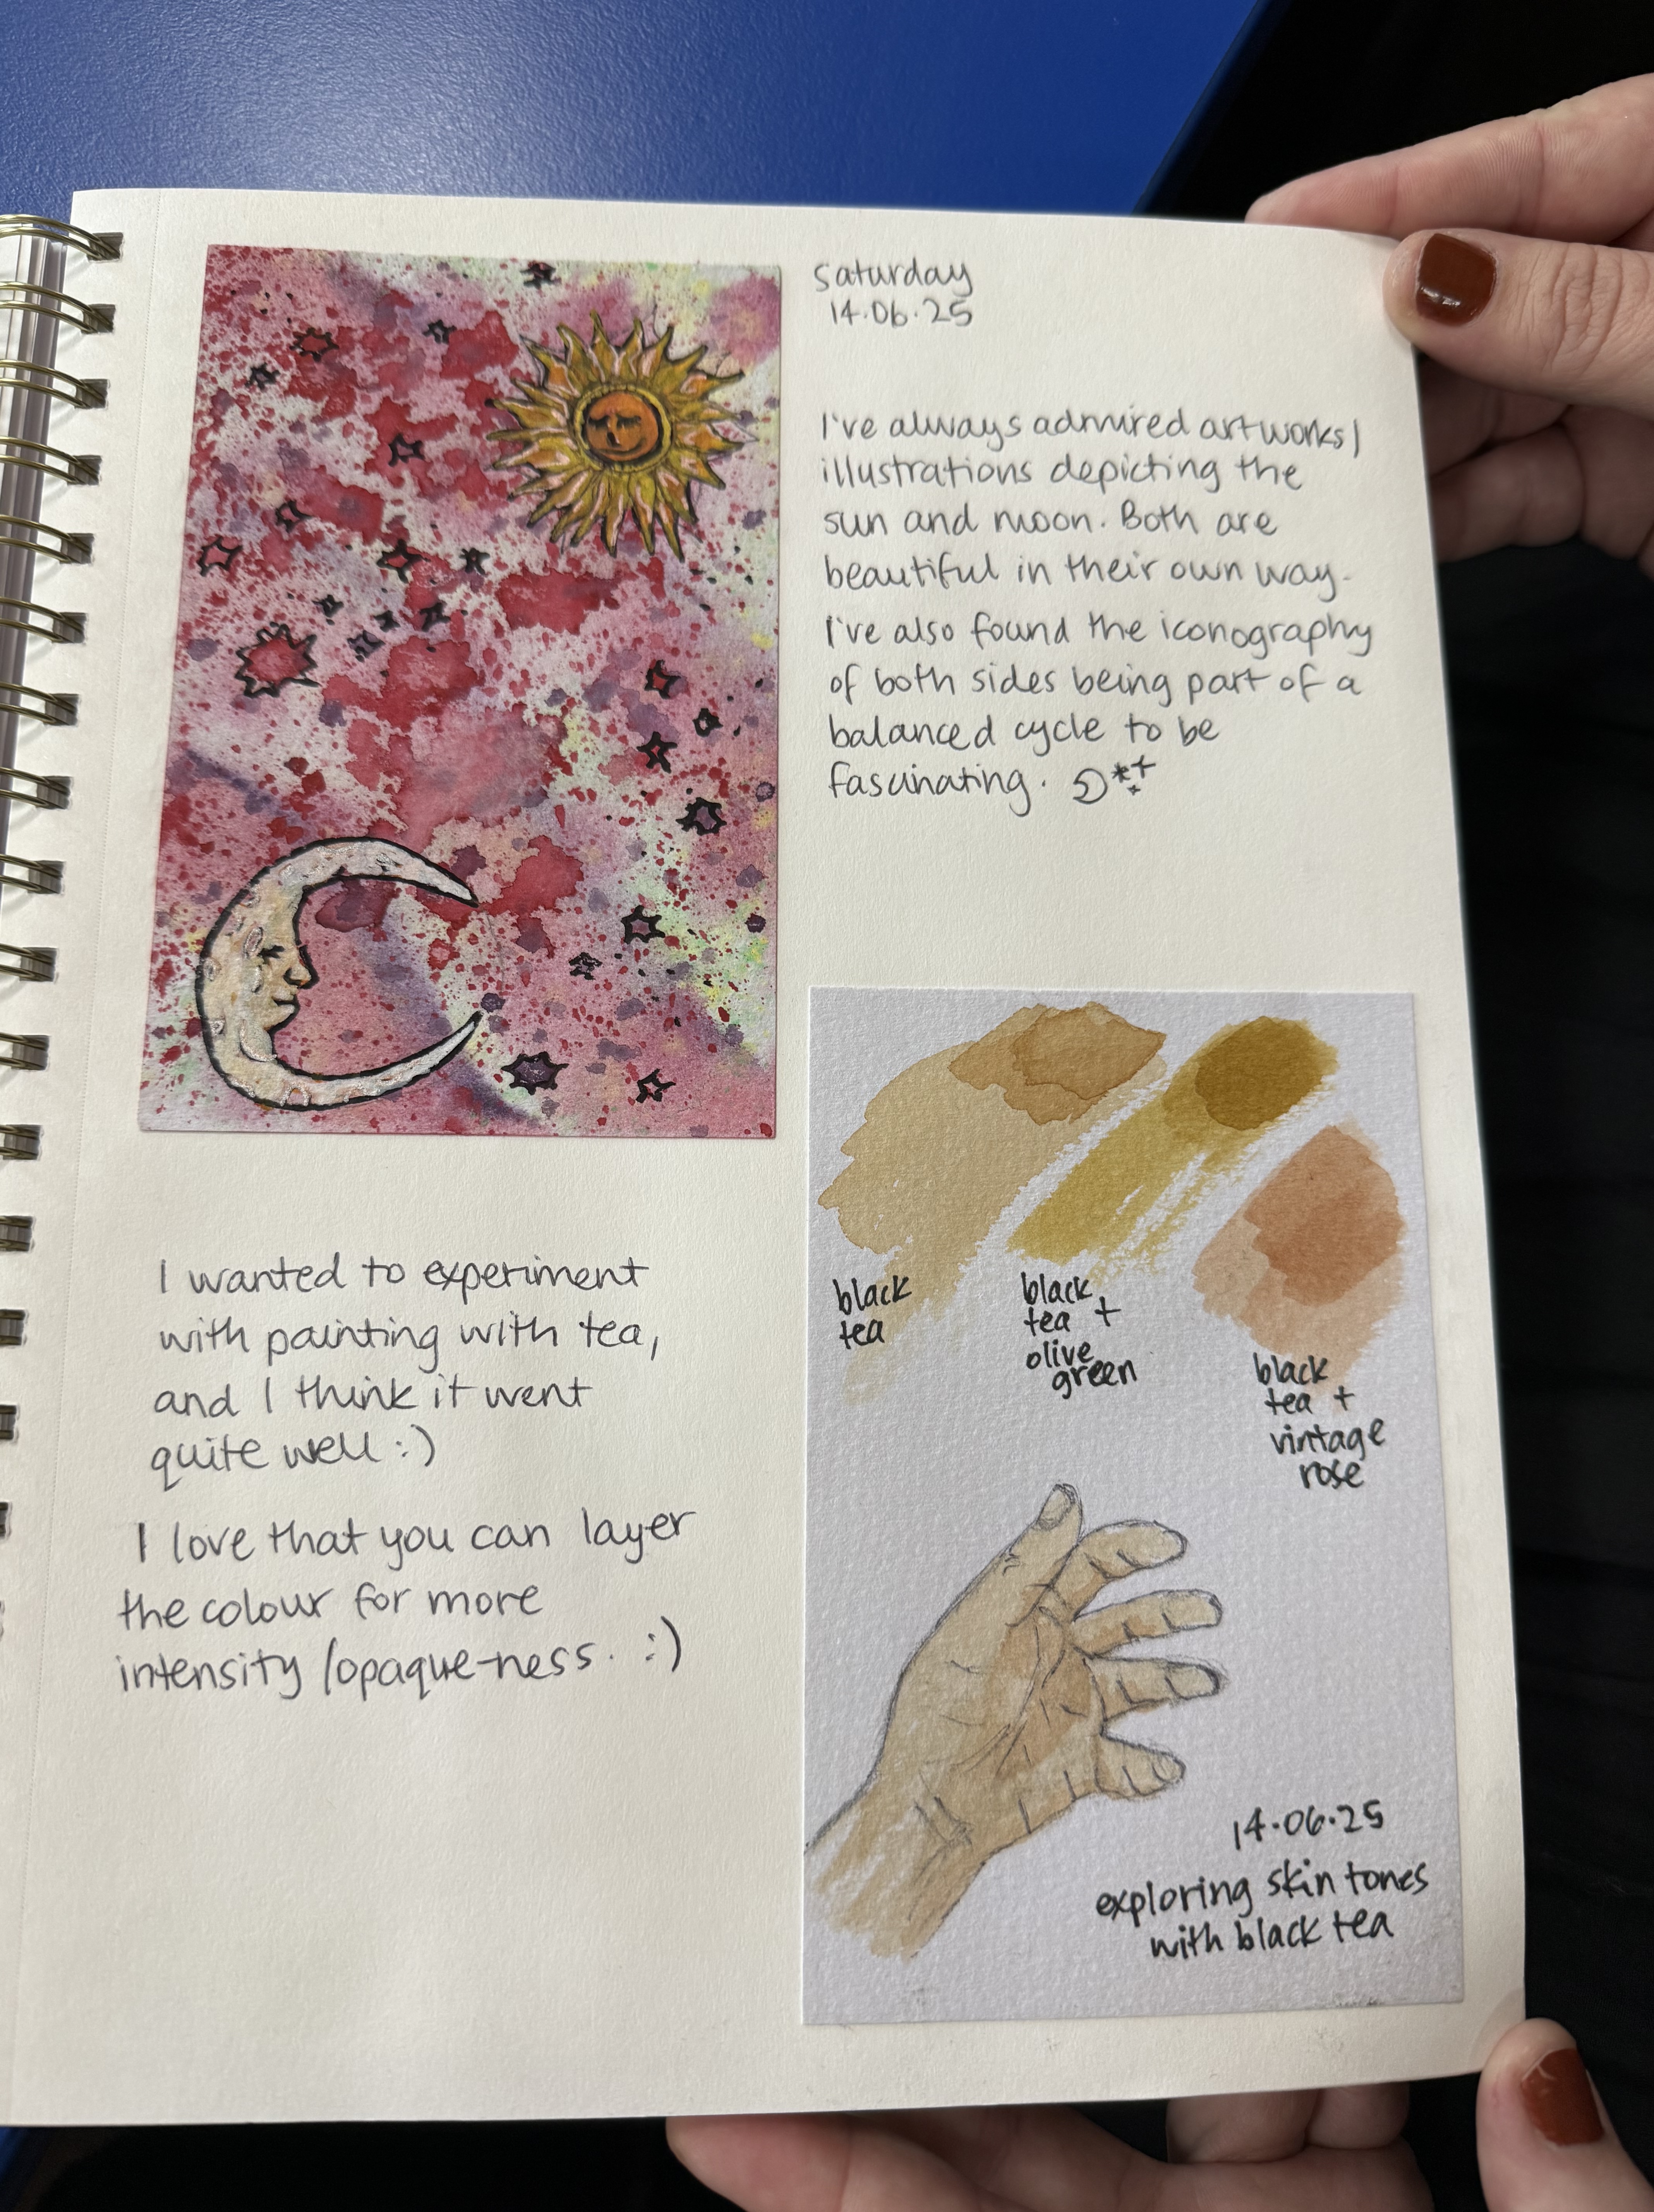 saturday
14.06.25
I've always admired artworks/
illustrations depicting the
sun and moon. Both are
beautiful in their own way.
I've also found the iconography
of both sides being part of a
balanced cycle to be
fascinating.
I wanted to experiment
with painting with tea,
and I think it went
quite well :)
I love that you can layer
the colour for more
intensity/opaque-ness. :)
black
tea
black
tea +
olive
green
black
tea +
vintage
rose
14.06.25
exploring skin tones
with black tea